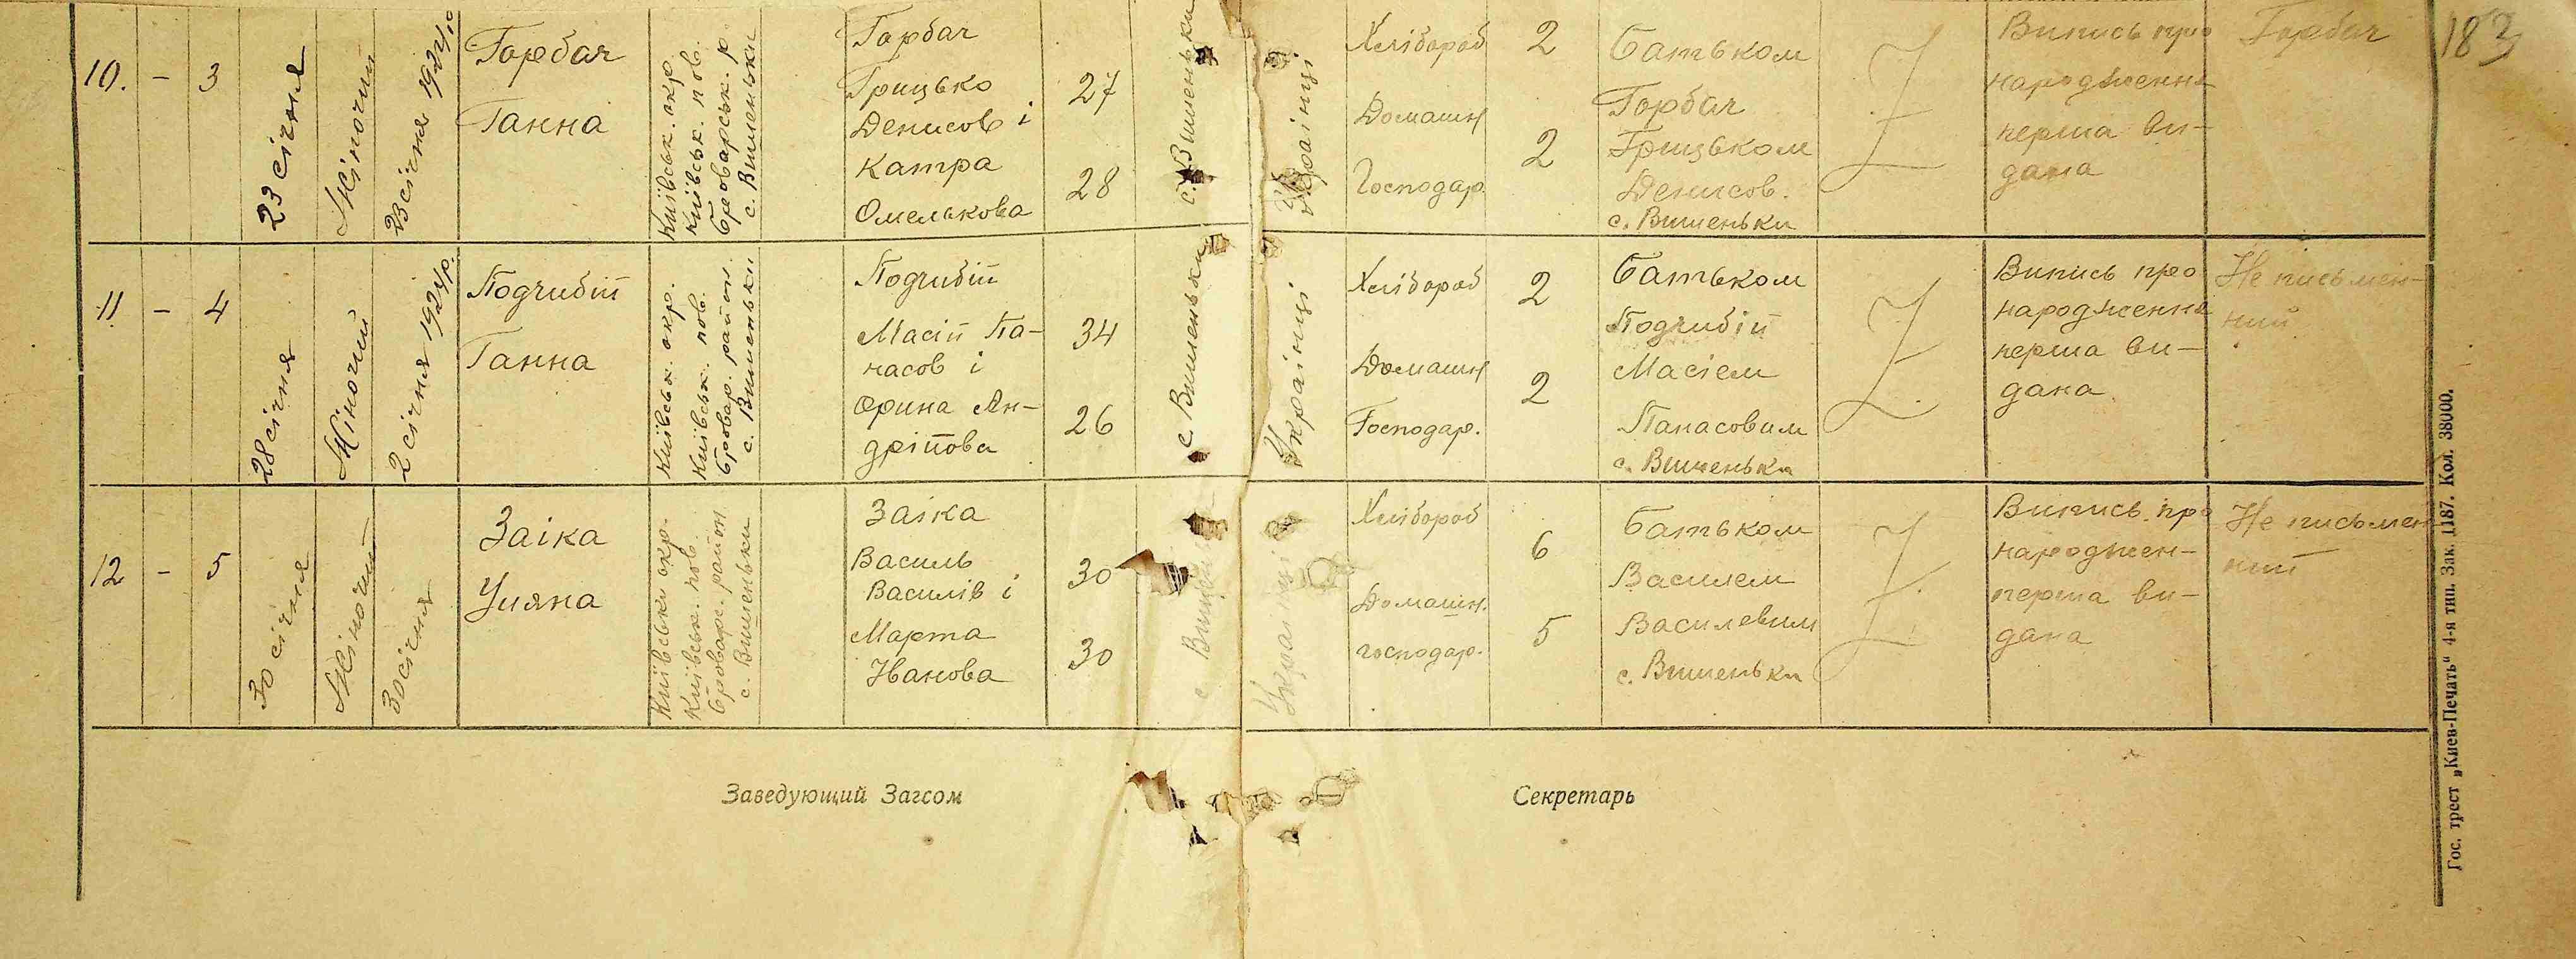 10. – 3
23 січня
Жіночий
23 січня 1924 р.
Горбач
Ганна
Київськ. окр.
Київськ. пов.
Броварськ. р.
с. Вишеньки
Горбач
Грицько
Денисов і
Катра
Омелькова
27
28
с. Вишеньки
Українці
Хлібороб
Домашн
Господар.
2
2
Батьком
Горбач
Грицьком
Денисов.
с. Вишеньки
Випись про
народження
перша ви-
дана
Горбач
183
11 – 4
28 січня
Жіночий
2 січня 1924 р.
Подгибій
Ганна
Київськ. окр.
Київськ. пов.
Бровар. район.
с. Вишеньки
Подгибій
Масій Па-
насов і
Орина Ан-
дріїова
34
26
с. Вишеньки
Українці
Хлібороб
Домашн
Господар.
2
2
Батьком
Подгибій
Масієм
Панасовим
с. Вишеньки
Випись про
народження
перша ви-
дана
Не письмен-
ний
12 – 5
30 січня
Жіночий
30 січня
Заіка
Уляна
Київськи окр.
Київськ. пов.
Броварс. район
с. Вишеньки
Заіка
Василь
Василів і
Марта
Іванова
30
30
с Вишень
Українці
Хлібороб
Домашн.
господар.
6
5
Батьком
Василем
Василевим
с. Вишеньки
Випись про
народжен-
перша ви-
дана
Не письмен
ний
Заведующий Загсом
Секретарь
Гос. трест „Киев-Печать“ 4-я тип. Зак. 1187. Кол. 38000.